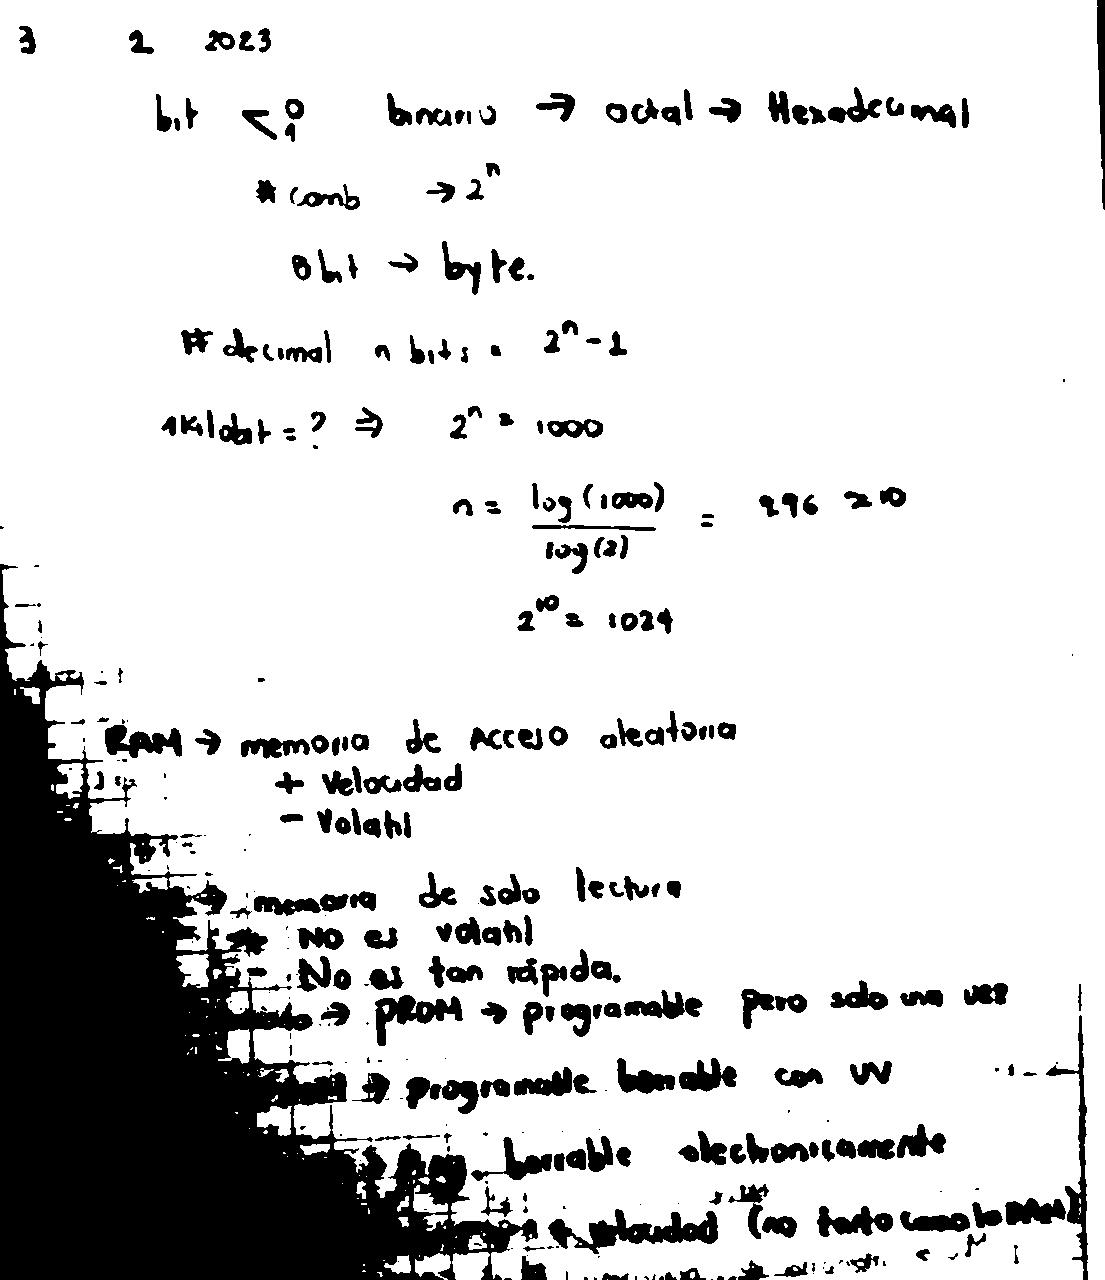 3 2 2023
bit < 0 1 binario → octal → Hexadecimal
# comb → 2^n
8 bit → byte.
# decimal n bits = 2^n - 1
1 Kilobit = ? ⇒ 2^n = 1000
n = log(1000) / log(2) = 9.96 ≈ 10
2^10 = 1024
RAM → memoria de Acceso aleatoria
+ Velocidad
- Volatil
→ memoria de solo lectura
+ NO es volatil
- No es tan rápida.
→ PROM → programable pero solo una vez
→ programable borrable con UV
→ prog. borrable electronicamente
+ velocidad (no tanto como la RAM)